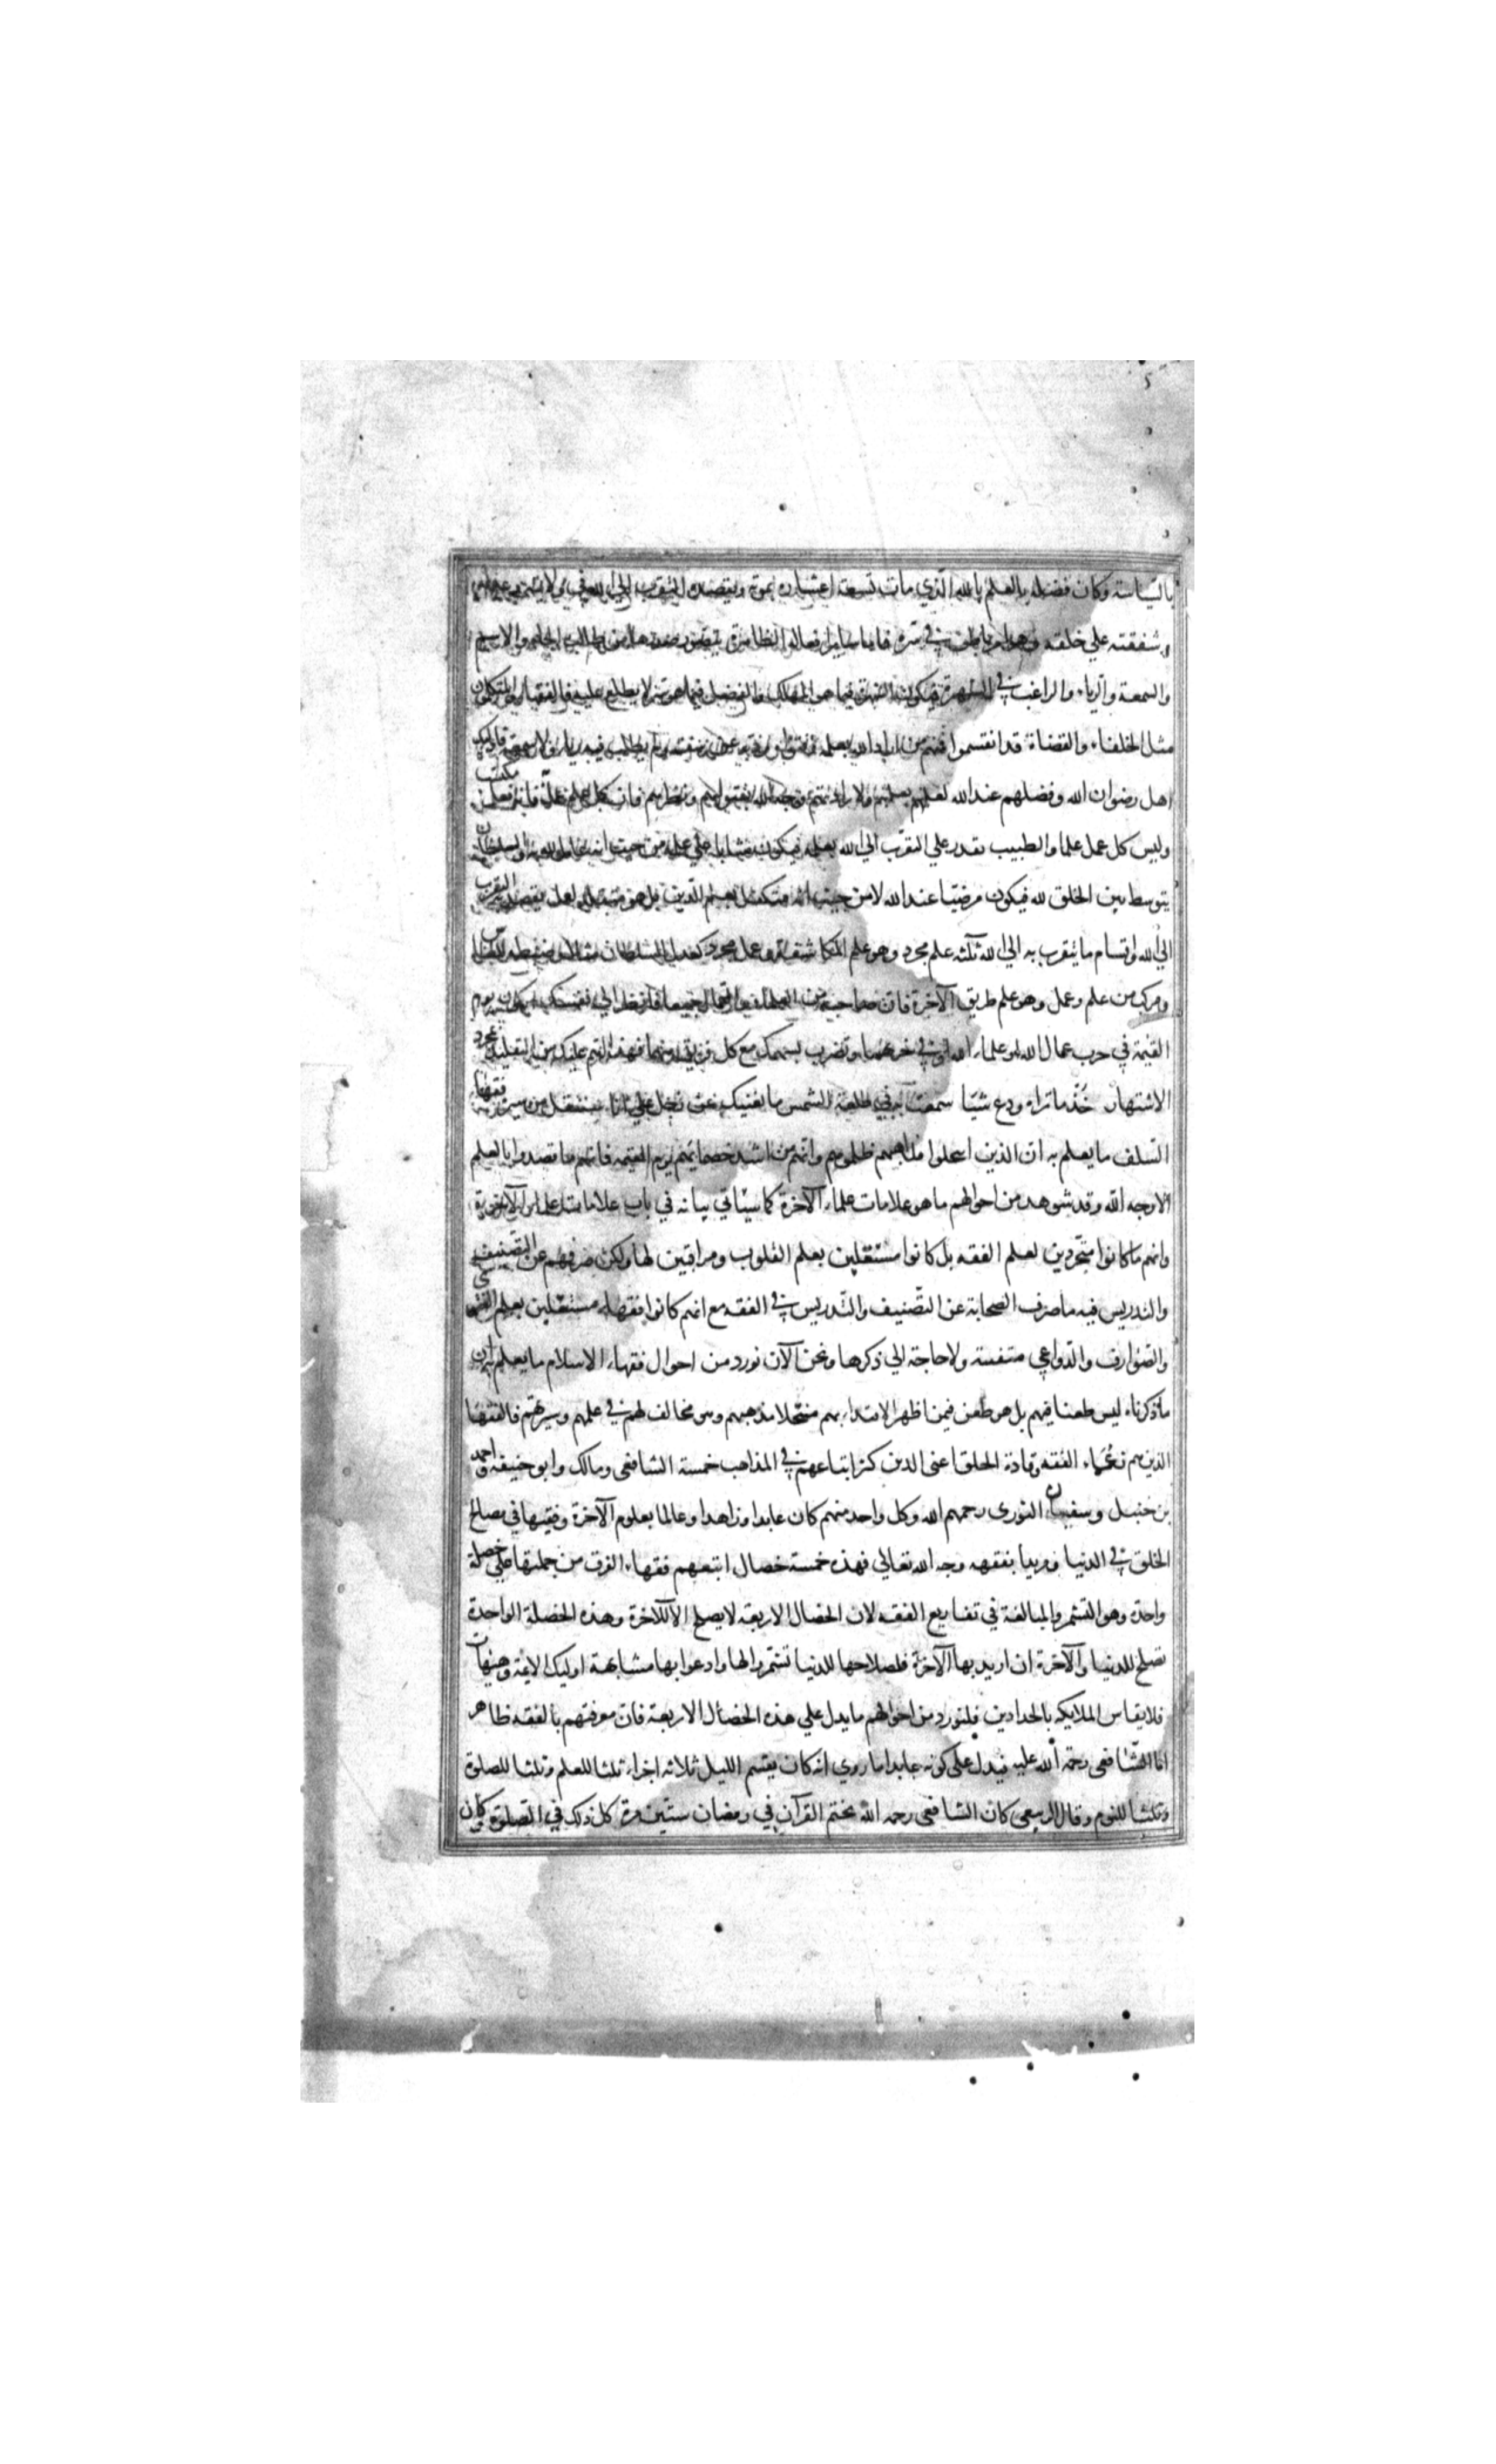 بالسياسة وكان فضله بالعلم بالله الذي مات تسعة اعشاره بموته وبقصده التقرب الي الله في ولايته
وشفقته علي خلقه وهو امر باطن في سره فاما ساير افعاله الظاهرة فيتصور صدورها من طالب الجاه والاسم
والسمعة والرياء والراغب في الشهرة فيكون الشهرة فيما هو المهلك والفضل فيما هو سر لا يطلع عليه فالفقهاء والمتكلمون
مثل الخلفاء والقضاة قد انقسموا فمنهم من اراد الله بعلمه وفتواه ولم يطلب فيه رياء ولا سمعة فاوليك
اهل رضوان الله وفضلهم عند الله لعملهم بعلمهم ولارادتهم وجه الله بفتواهم ونظرهم فان كل علم عمل فانه فعل مكتسب
وليس كل عمل علما والطبيب يقدر علي التقرب الي الله بعلمه فيكون مثابا علي علمه من حيث انه عامل لله والسلطان
يتوسط بين الخلق لله فيكون مرضيا عند الله لا من حيث انه متكفل بعلم الدين بل هو متقلد لعمل يقصد به التقرب
الي الله واقسام ما يتقرب به الي الله ثلثة علم مجرد وهو علم المكاشفة وعمل مجرد كعدل السلطان مثلا وضبطه للناس
ومركب من علم وعمل وهو علم طريق الآخرة فان صاحبه من العلماء والعمال جميعا فانظر الي نفسك اتكون يوم
القيمة في حزب عمال الله او علماء الله او في حزبهما وتضرب بسهمك مع كل فريق منهما فهذا اهم عليك من التقليد لمجرد
الاشتهار خذ ما تراه ودع شيئا سمعت به في طلعة الشمس ما يغنيك عن زحل علي انا سننقل من سيرة فقهاء
السلف ما يعلم به ان الذين انتحلوا مذاهبهم ظلموهم وانهم من اشد خصمايهم يوم القيمه فانهم ما قصدوا بالعلم
الا وجه الله وقد شوهد من احوالهم ما هو علامات علماء الآخرة كما سياتي بيانه في باب علامات علماء الآخرة
وانهم ما كانوا متجردين لعلم الفقه بل كانوا مشتغلين بعلم القلوب ومراقبين لها ولكن صرفهم عن التصنيف
والتدريس فيه ما صرف الصحابة عن التصنيف والتدريس في الفقه مع انهم كانوا فقهاء مستقلين بعلم الفتوى
والصوارف والدواعي متقنة ولا حاجة الي ذكرها ونحن الآن نورد من احوال فقهاء الاسلام ما يعلم به ان
ما ذكرناه ليس طعنا فيهم بل هو طعن فيمن اظهر الاقتداء بهم منتحلا مذهبهم وهو مخالف لهم في علمهم وسيرتهم فالفقهاء
الذين هم زعماء الفقه وقادة الخلق اعني الدين كثر اتباعهم في المذاهب خمسة الشافعي ومالك وابو حنيفه واحمد
بن حنبل وسفيان الثوري رحمهم الله وكل واحد منهم كان عابدا وزاهدا وعالما بعلوم الآخرة وفقيها في مصالح
الخلق في الدنيا ومريدا بفقهه وجه الله تعالي فهذه خمسة خصال اتبعهم فقهاء الفرق من جملتها علي خصلة
واحدة وهو التشمر والمبالغة في تفاريع الفقه لان الخصال الاربعة لا يصلح الا للآخرة وهذه الخصلة الواحدة
تصلح للدنيا والآخرة ان اريد بها الآخرة فلصلاحها للدنيا تشمروا لها وادعوا بها مشابهة اوليك الايمة وهيهات
فلا يقاس الملايكه بالحدادين فلنورد من احوالهم ما يدل علي هذه الخصال الاربعة فان معرفتهم بالفقه ظاهر
اما الشافعي رحمة الله عليه فيدل علي كونه عابدا ما روي انه كان يقسم الليل ثلاثه اجزاء ثلثا للعلم وثلثا للصلوة
وثلثا للنوم وقال الربيع كان الشافعي رحمه الله يختم القرآن في رمضان ستين مرة كل ذلك في الصلوة وكان